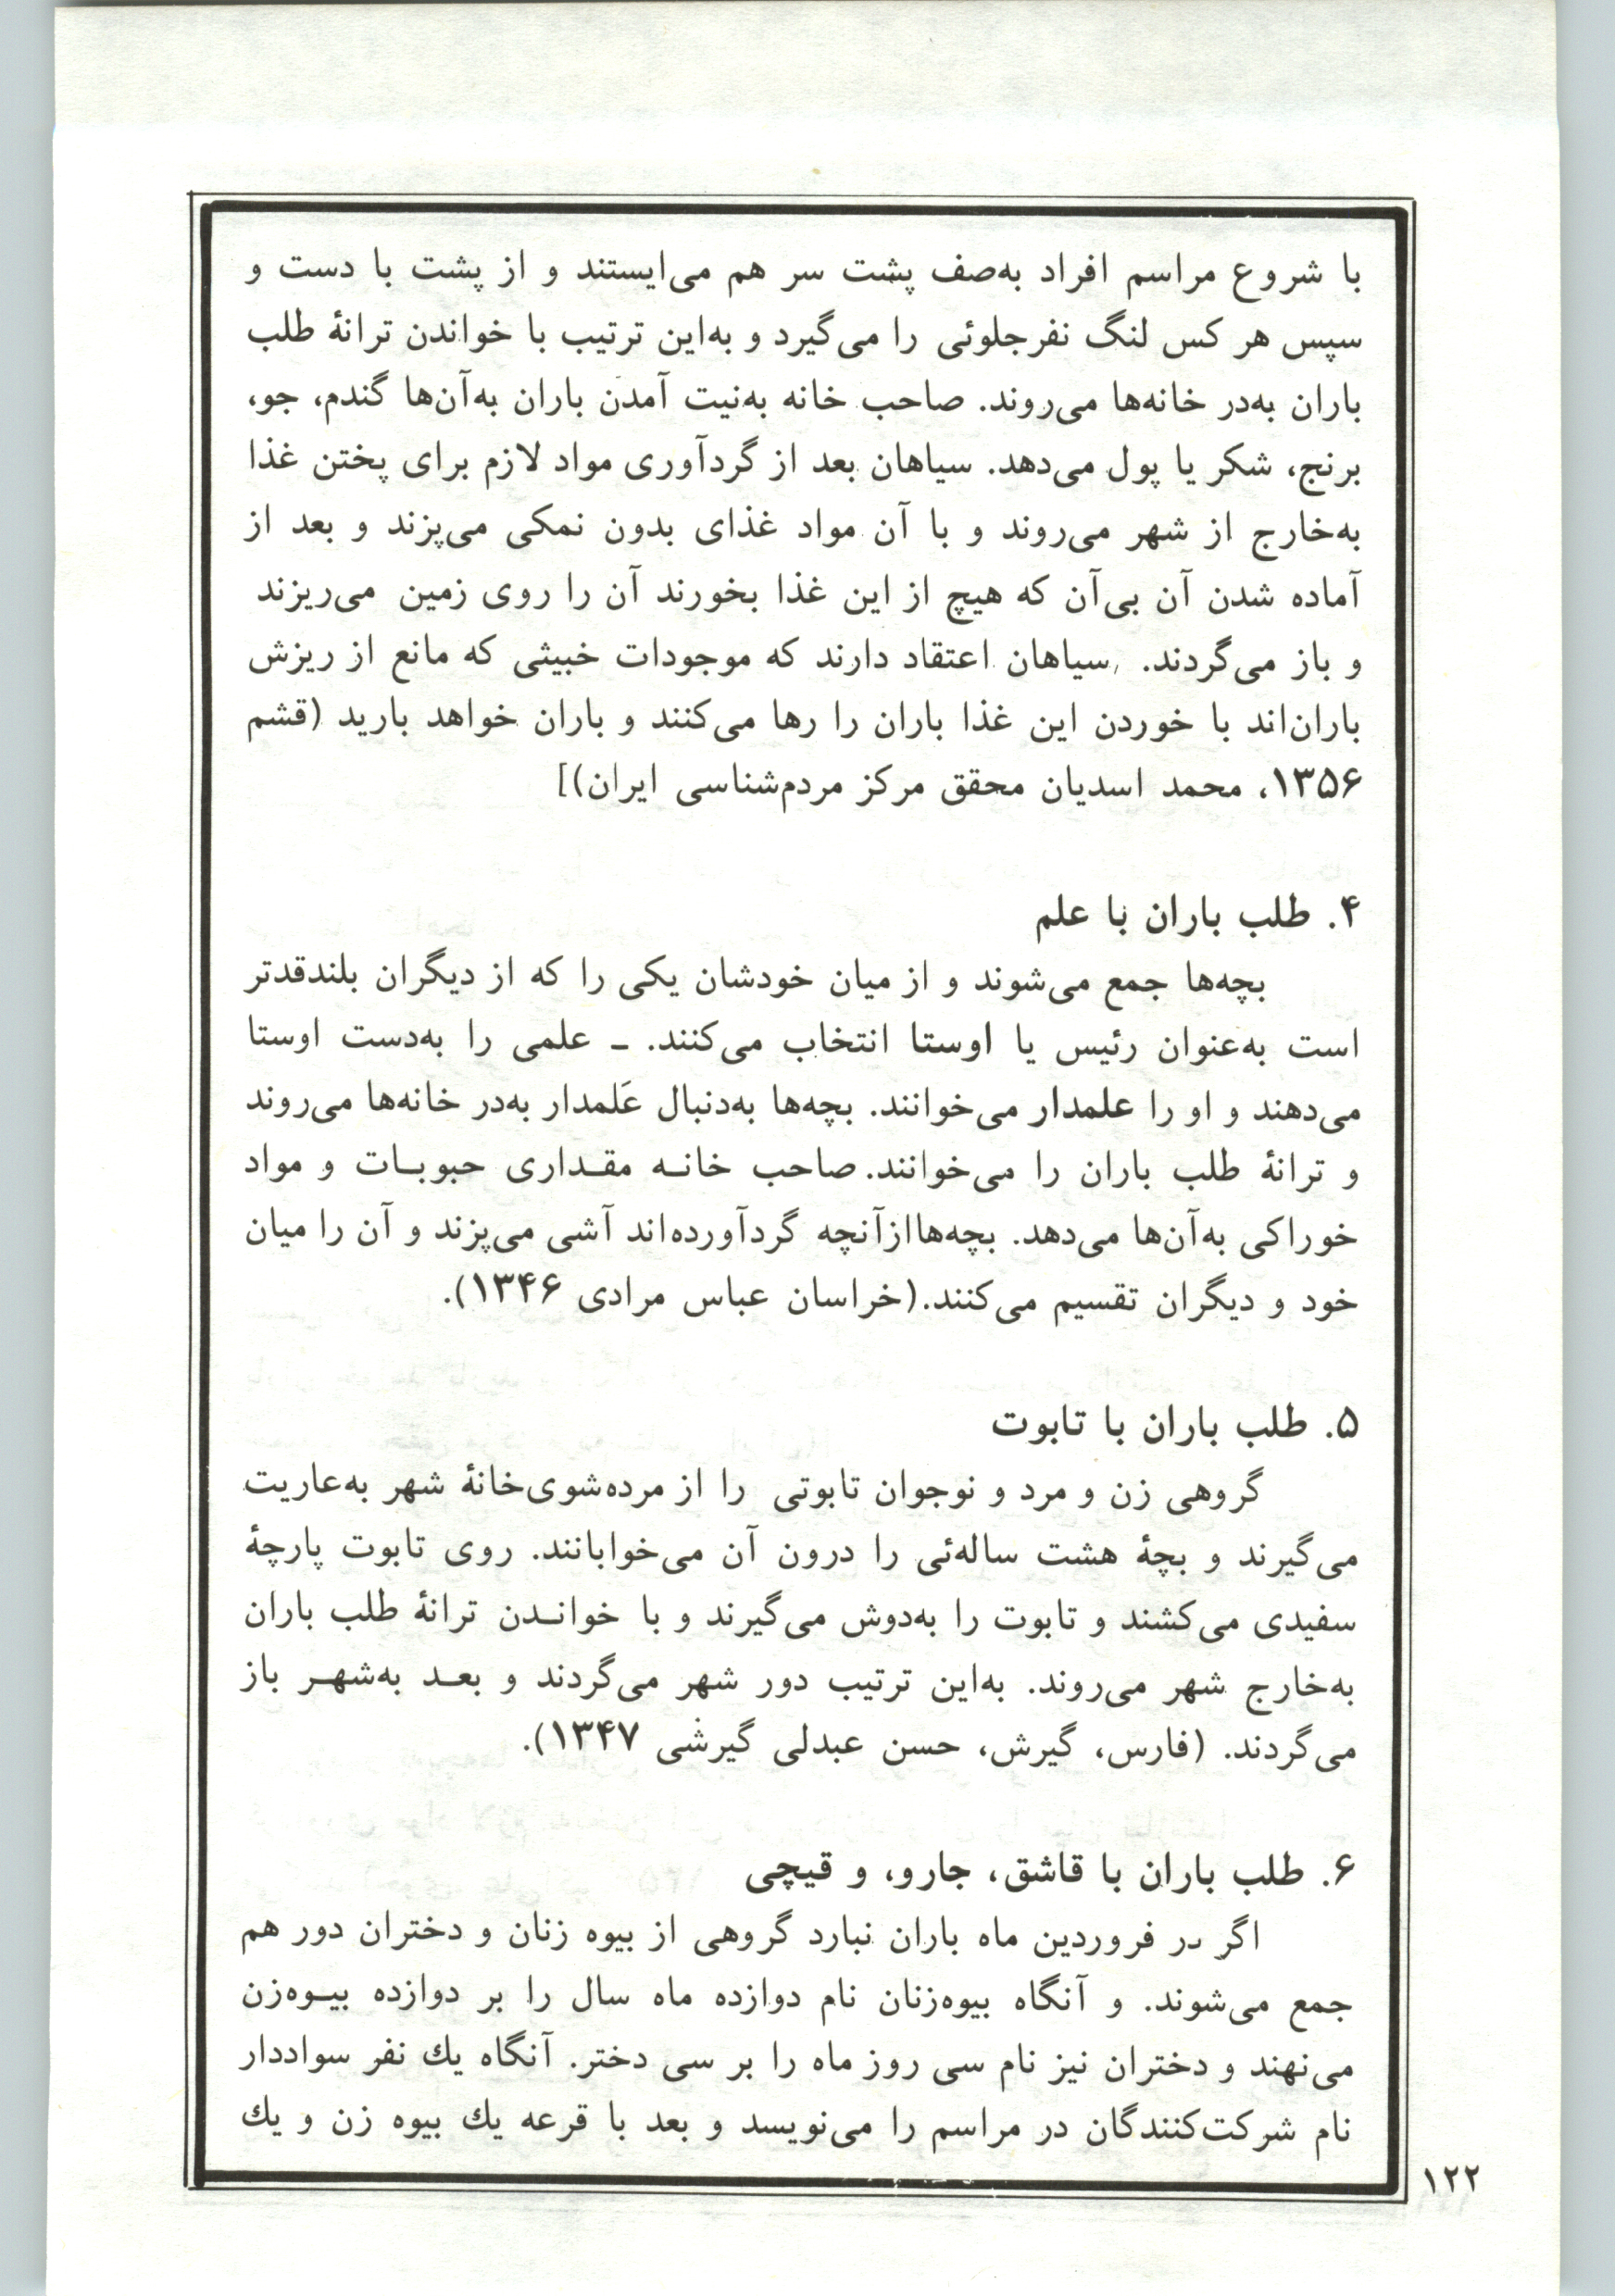 با شروع مراسم افراد به‌صف پشت سر هم می‌ایستند و از پشت با دست و
سپس هر کس لنگ نفرجلوئی را می‌گیرد و به‌این ترتیب با خواندن ترانهٔ طلب
باران به‌در خانه‌ها می‌روند. صاحب خانه به‌نیت آمدن باران به‌آن‌ها گندم، جو،
برنج، شکر یا پول می‌دهد. سیاهان بعد از گردآوری مواد لازم برای پختن غذا
به‌خارج از شهر می‌روند و با آن مواد غذای بدون نمکی می‌پزند و بعد از
آماده شدن آن بی‌آن که هیچ از این غذا بخورند آن را روی زمین می‌ریزند
و باز می‌گردند. سیاهان اعتقاد دارند که موجودات خبیثی که مانع از ریزش
باران‌اند با خوردن این غذا باران را رها می‌کنند و باران خواهد بارید (قشم
۱۳۵۶، محمد اسدیان محقق مرکز مردم‌شناسی ایران)]
۴. طلب باران با علم
بچه‌ها جمع می‌شوند و از میان خودشان یکی را که از دیگران بلندقدتر
است به‌عنوان رئیس یا اوستا انتخاب می‌کنند. ـ علمی را به‌دست اوستا
می‌دهند و او را علمدار می‌خوانند. بچه‌ها به‌دنبال عَلمدار به‌در خانه‌ها می‌روند
و ترانهٔ طلب باران را می‌خوانند. صاحب خانـه مقـداری حبوبـات و مواد
خوراکی به‌آن‌ها می‌دهد. بچه‌هاازآنچه گردآورده‌اند آشی می‌پزند و آن را میان
خود و دیگران تقسیم می‌کنند.(خراسان عباس مرادی ۱۳۴۶).
۵. طلب باران با تابوت
گروهی زن و مرد و نوجوان تابوتی را از مرده‌شوی‌خانهٔ شهر به‌عاریت
می‌گیرند و بچهٔ هشت ساله‌ئی را درون آن می‌خوابانند. روی تابوت پارچهٔ
سفیدی می‌کشند و تابوت را به‌دوش می‌گیرند و با خوانـدن ترانهٔ طلب باران
به‌خارج شهر می‌روند. به‌این ترتیب دور شهر می‌گردند و بعـد به‌شهـر باز
می‌گردند. (فارس، گیرش، حسن عبدلی گیرشی ۱۳۴۷).
۶. طلب باران با قاشق، جارو، و قیچی
اگر در فروردین ماه باران نبارد گروهی از بیوه زنان و دختران دور هم
جمع می‌شوند. و آنگاه بیوه‌زنان نام دوازده ماه سال را بر دوازده بیـوه‌زن
می‌نهند و دختران نیز نام سی روز ماه را بر سی دختر. آنگاه یك نفر سواددار
نام شرکت‌کنندگان در مراسم را می‌نویسد و بعد با قرعه یك بیوه زن و یك
۱۲۲